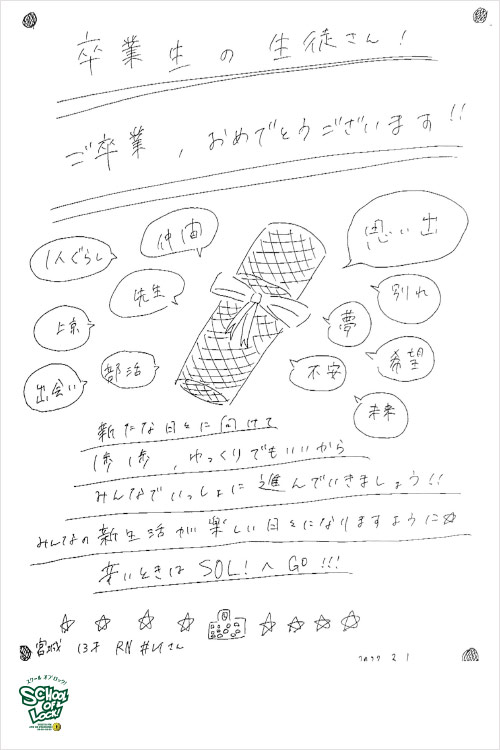 卒業生の生徒さん!
ご卒業,おめでとうございます!!
仲間
思い出
1人ぐらし
先生
別れ
上京
夢
希望
部活
不安
出会い
未来
新たな日々に向けて
1歩1歩,ゆっくりでもいいから
みんなでいっしょに進んでいきましょう!!
みんなの新生活が楽しい日々になりますように☆
辛いときはSOL!へGO!!!
宮城 13才 RN
スクール オブ ロック!
SCHOOL OF LOCK!